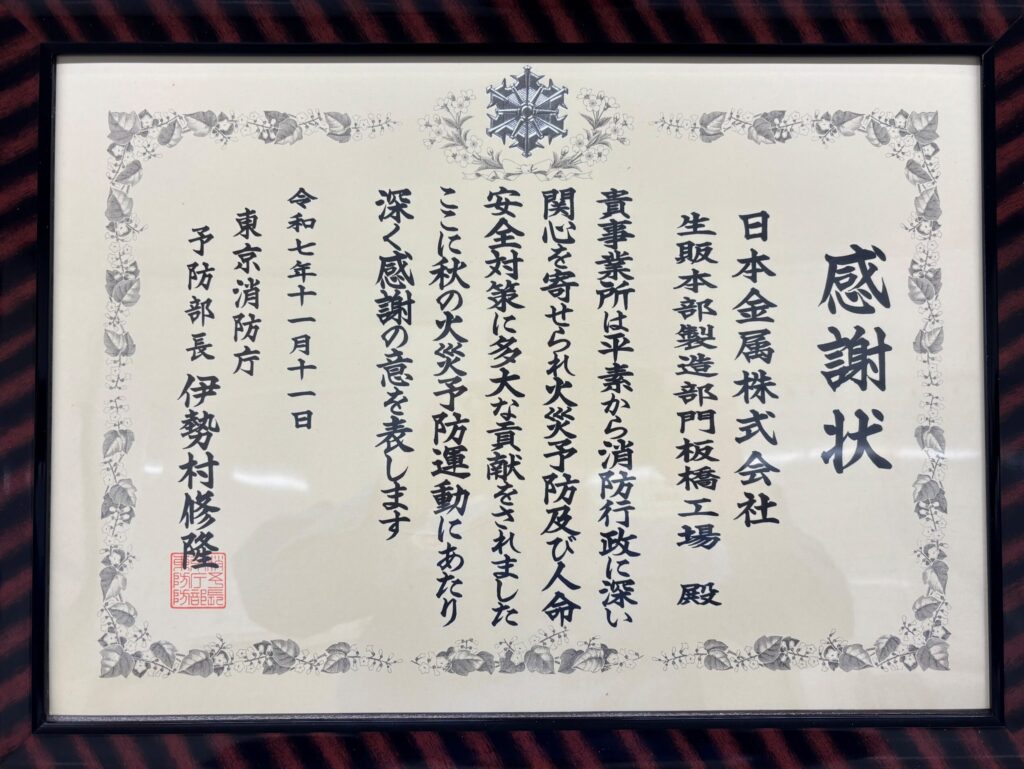 感謝状
日本金属株式会社
生販本部製造部門板橋工場 殿
貴事業所は平素から消防行政に深い
関心を寄せられ火災予防及び人命
安全対策に多大な貢献をされました
ここに秋の火災予防運動にあたり
深く感謝の意を表します
令和七年十一月十一日
東京消防庁
予防部長 伊勢村修隆